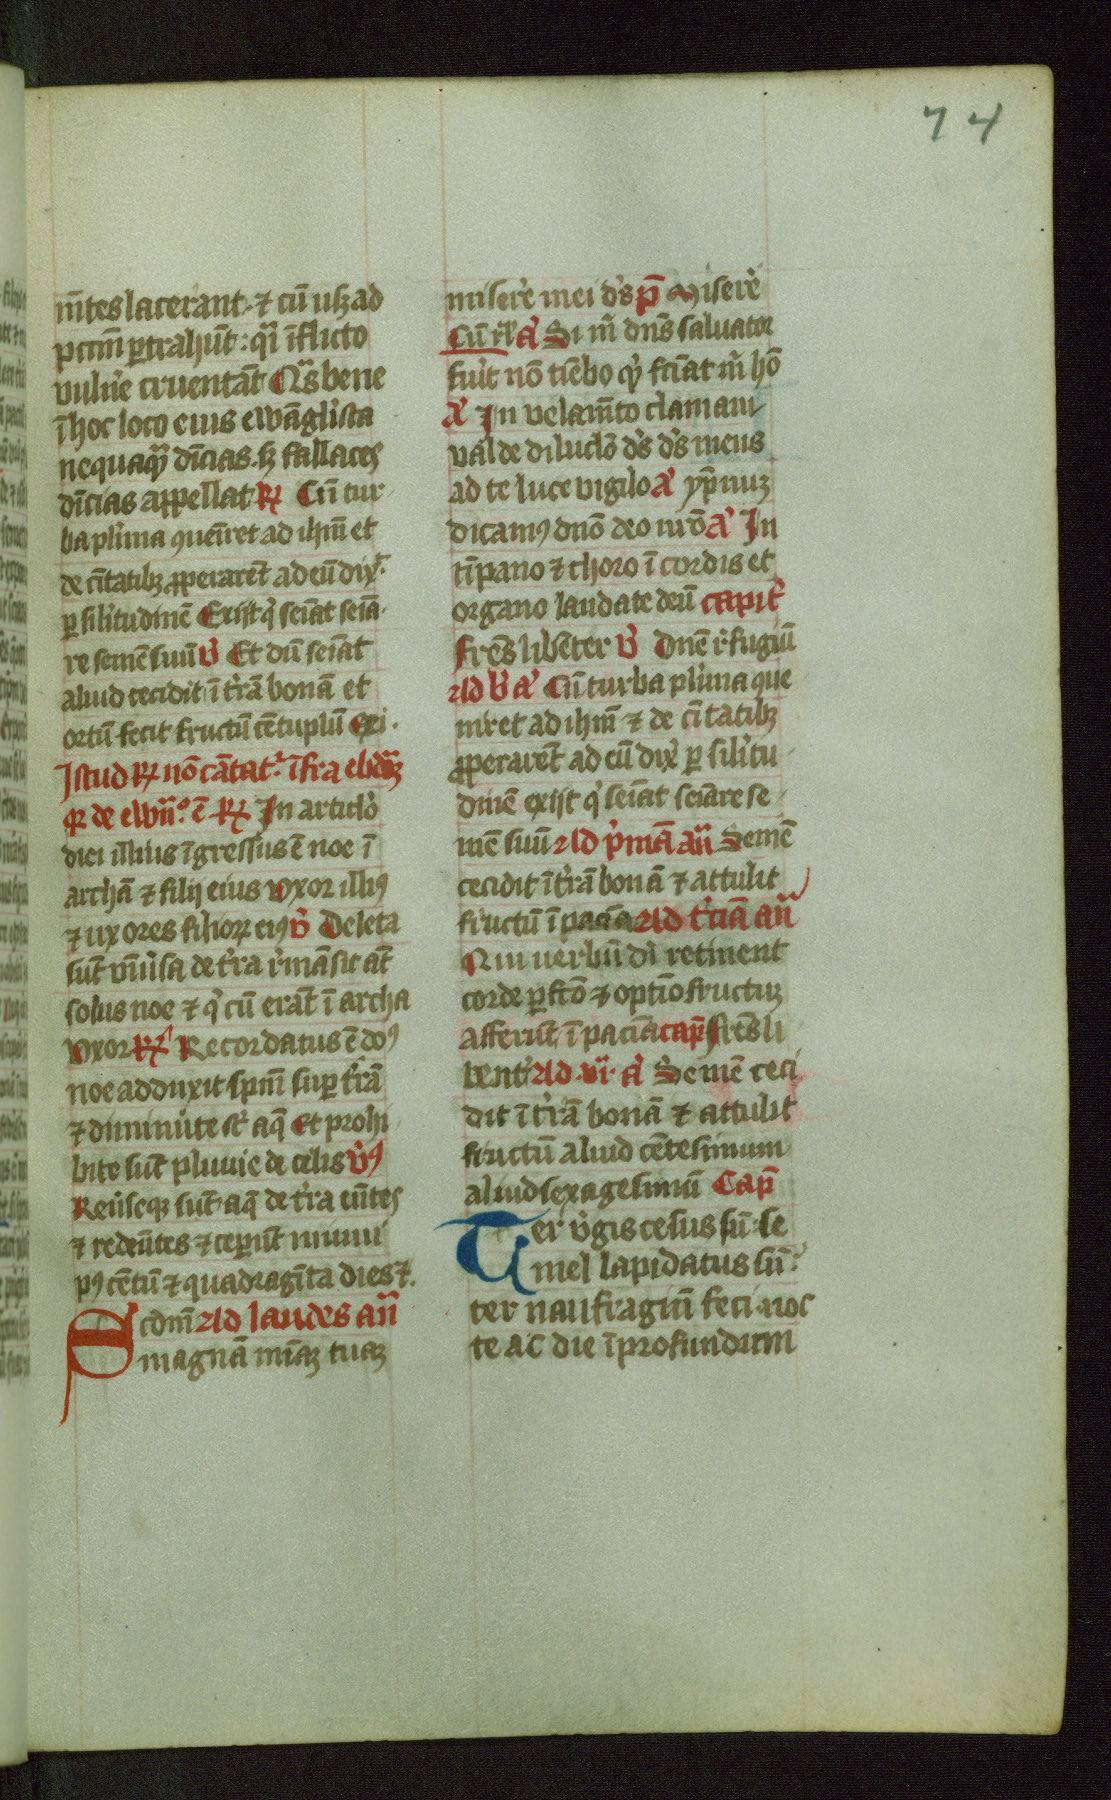 74
mētes lacerant ⁊ cū usqꝫ ad
pctm̄ ꝑtrahūt : qͣi īflicto
vulne᷒ cruentāt Qͣs bene
ī hoc loco eius ewāglista
nequaqͣꝫ diīcias. sꝫ fallaces
diīcias appellat ℟ Cū tur
ba plīma ꝯueīret ad ihm̄ et
de ciītatibꝫ ꝓperarēt ad eū dixͭ
ꝑ silitudinē Exijt qͥ seīat seīa
re semē suū ℣ Et dū seīat
aliud cecidit ī trā bonā et
ortū fecit fructū cētuplū Exi.
Istud ℟ nō cātat᷑ īfra ebdꝫ
qꝛ de ewᷓ.º ē ℟ In articlo
diei illius īgressus ē noe ī
archā ⁊ filij eius vxor illiꝰ
⁊ uxores filioꝝ eiꝰ ℣ Deleta
sūt vniūsa de tra rmāsit aūt
solus noe ⁊ qͥ cū erāt ī archa
Vxor ℟ Recordatus ē dn̄s
noe adduxit spm̄ suꝑ trā
⁊ diminute sūt aq̄ Et prohi
bite sūt pluuie de celis ℣ꝰ
Reuseqꝫ sūt aq̄ de tra eūtes
⁊ redeūtes ⁊ ceperūt minui
pꝰ cētū ⁊ quadragīta dies ⁊.
Scdm̄ Ad laudes an̄
magnā miāꝫ tuaꝫ
misere mei ds p̄ Misere
Cū rl̄ a᷒ Si m̄ dn̄s saluator
fuīt nō tiēbo qͥd fciat m̄ hō
a᷒ In velamēto clamaui
valde diluclō ds ds meus
ad te luce vigilo a᷒ ypnuꝫ
dicamꝰ dn̄o deo nr̄o a᷒ In
tīpano ⁊ choro ī cordis et
organo laudate deū capit᷒
frēs libēter ℣ Dn̄e rfugiū
Ad b a᷒ Cū turba plīma que
niret ad ihm̄ ⁊ de ciītatibꝫ
ꝓperarēt ad eū dix ꝑ silitu
dinē exijt qͥ seīat seīare se
mē suū Ad pͥmā an̄ Semē
cecidit ī trā bonā ⁊ attulit
fructū ī paciīa Ad tciā an̄
Qui verbū di retinent
corde ꝑfcō ⁊ optīo fructuꝫ
afferūt ī paciīa cap̄ frēs li
benter Ad .vi. a᷒ Semē ceci
dit ī trā bonā ⁊ attulit
fructū aliud cētesimum
aliud sexagesimū Cap̄
Ter vgis cesus sū se
mel lapidatus sū
ter naufragiū feci noc
te ac die ī profundum